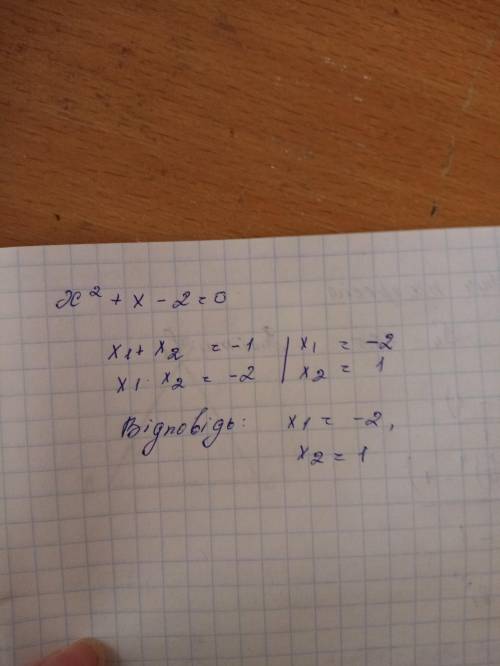 x² + x - 2 = 0
x1 + x2 = -1 | x1 = -2
x1 · x2 = -2 | x2 = 1
Відповідь: x1 = -2,
x2 = 1